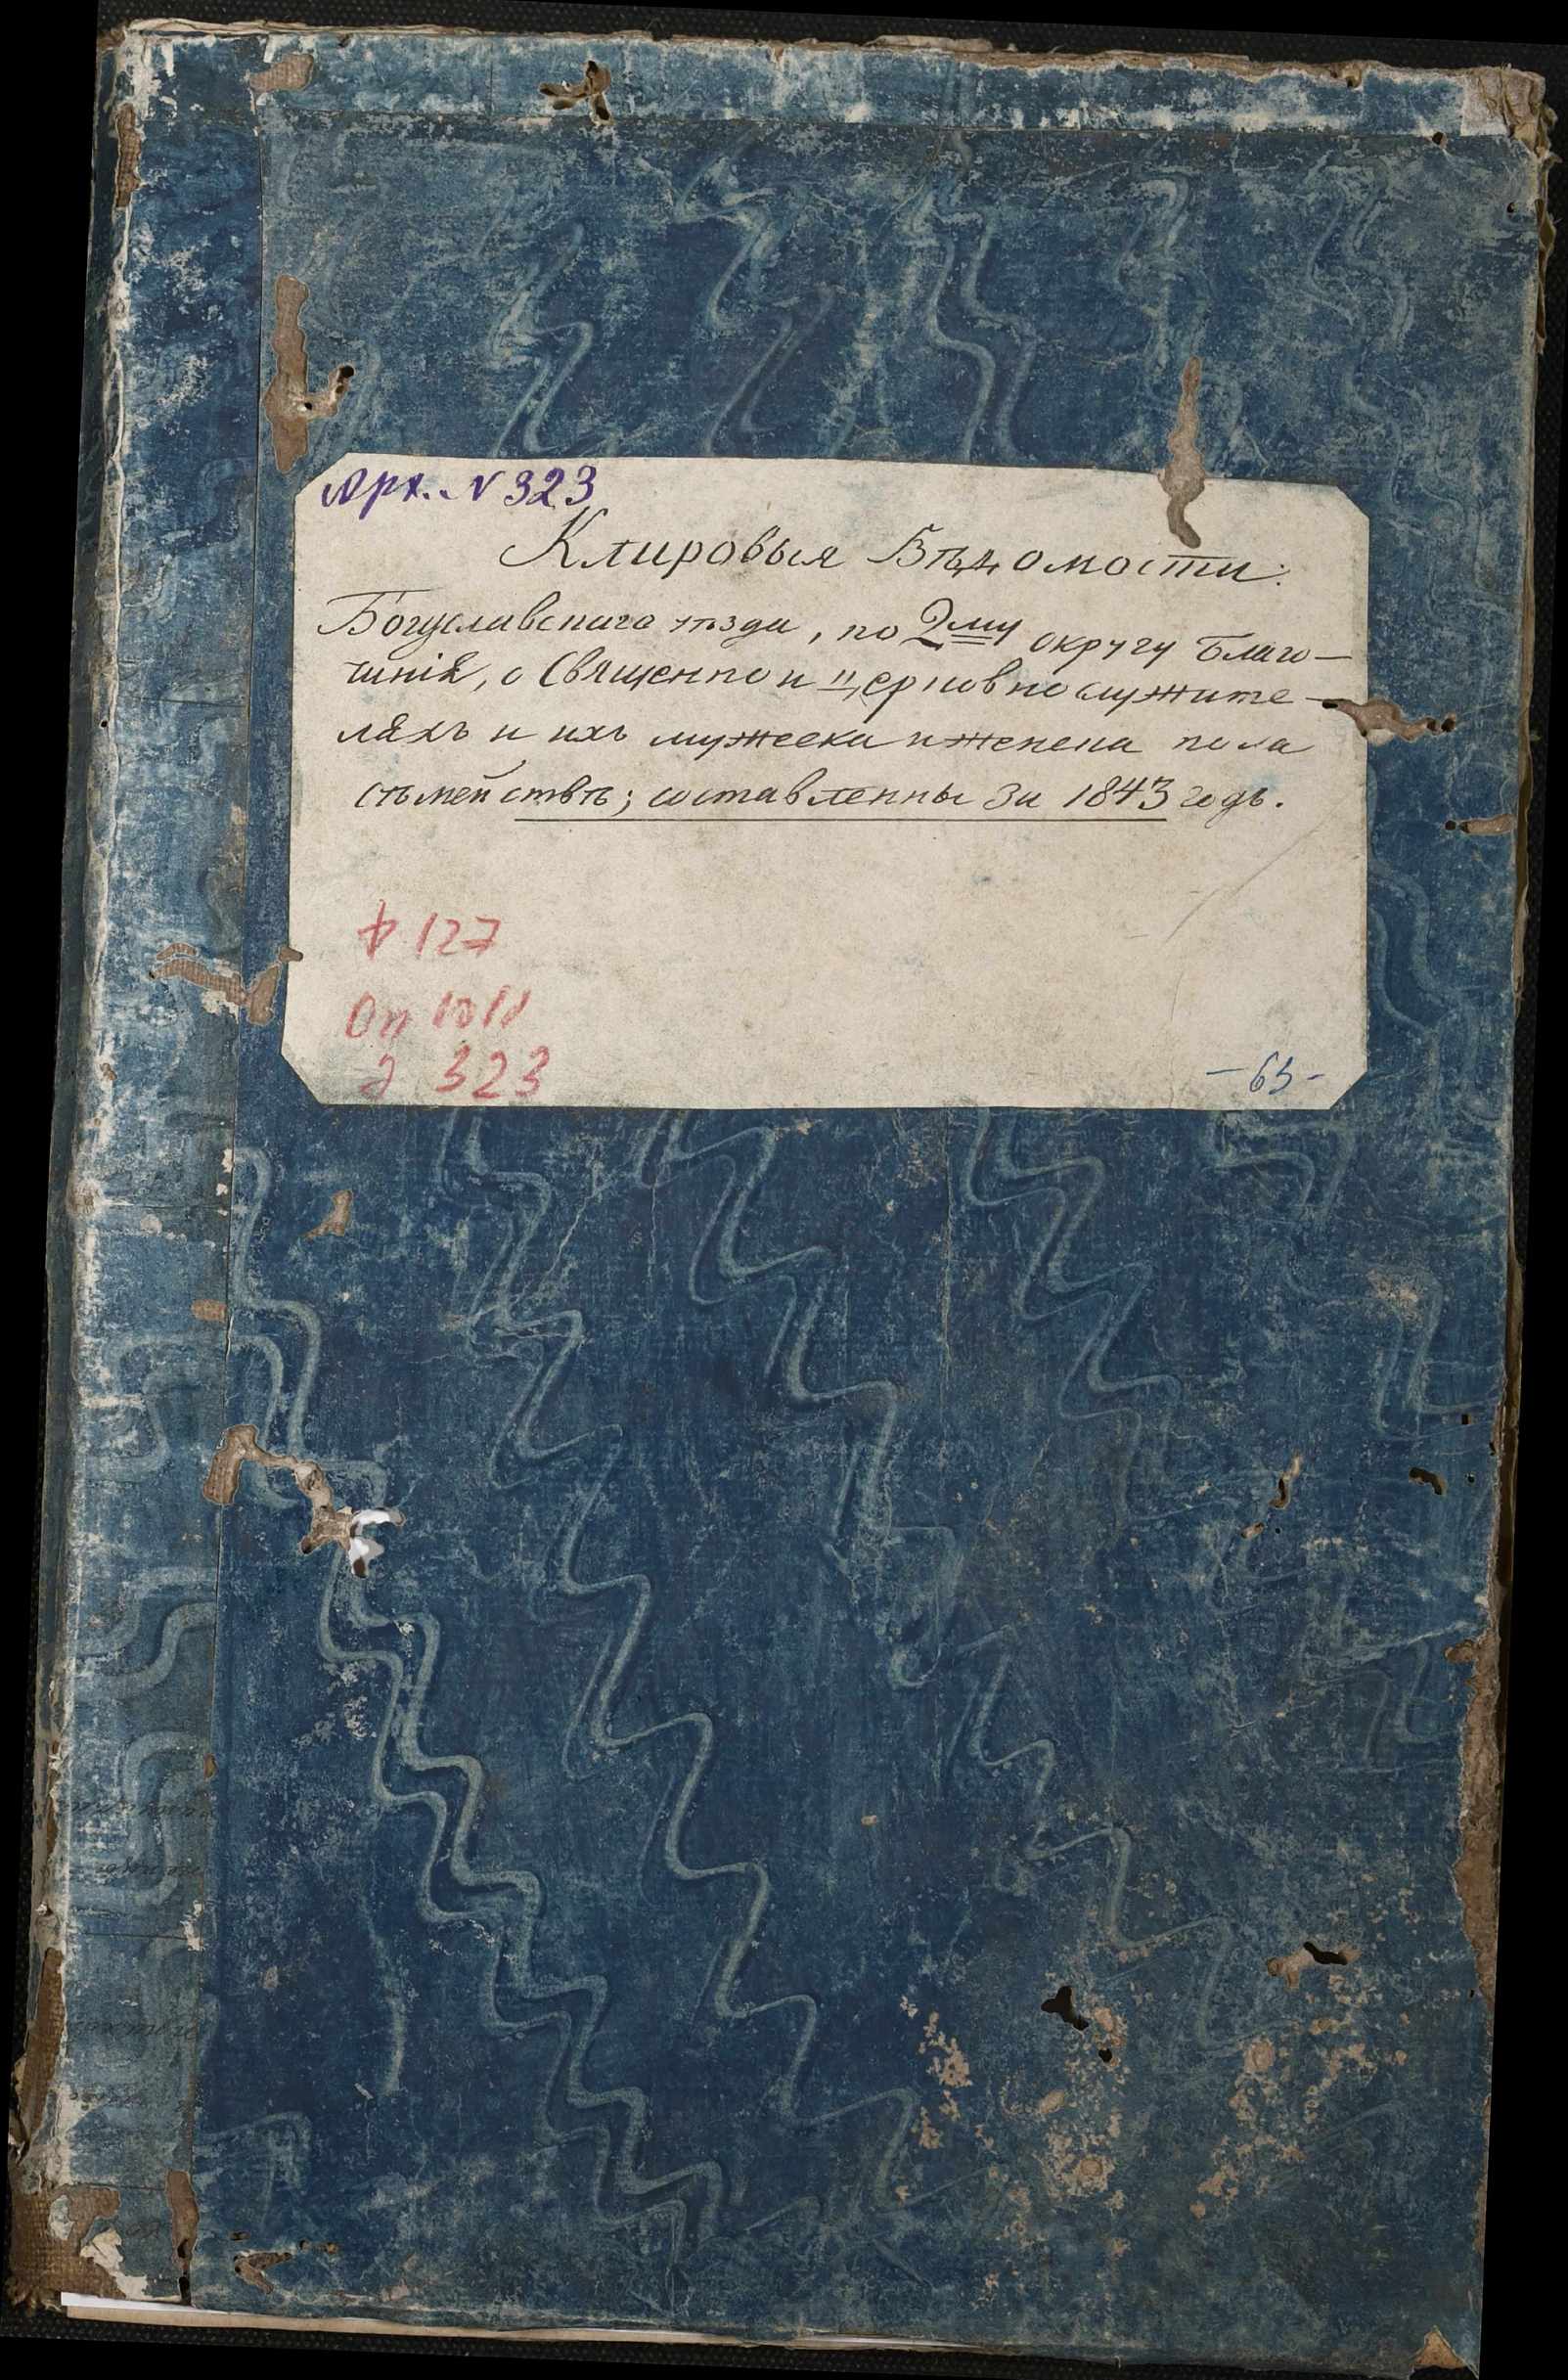 Арх. N 323
Клировыя Вѣдомости:
Богуславскаго уѣзда, по 2му округу Благо-
чинія, о Священно и церковно служите-
ляхъ и ихъ мужеска и женска пола
сѣмействѣ; составленны за 1843 годъ.
Ф 127
Оп 1011
д 323
- 63 -